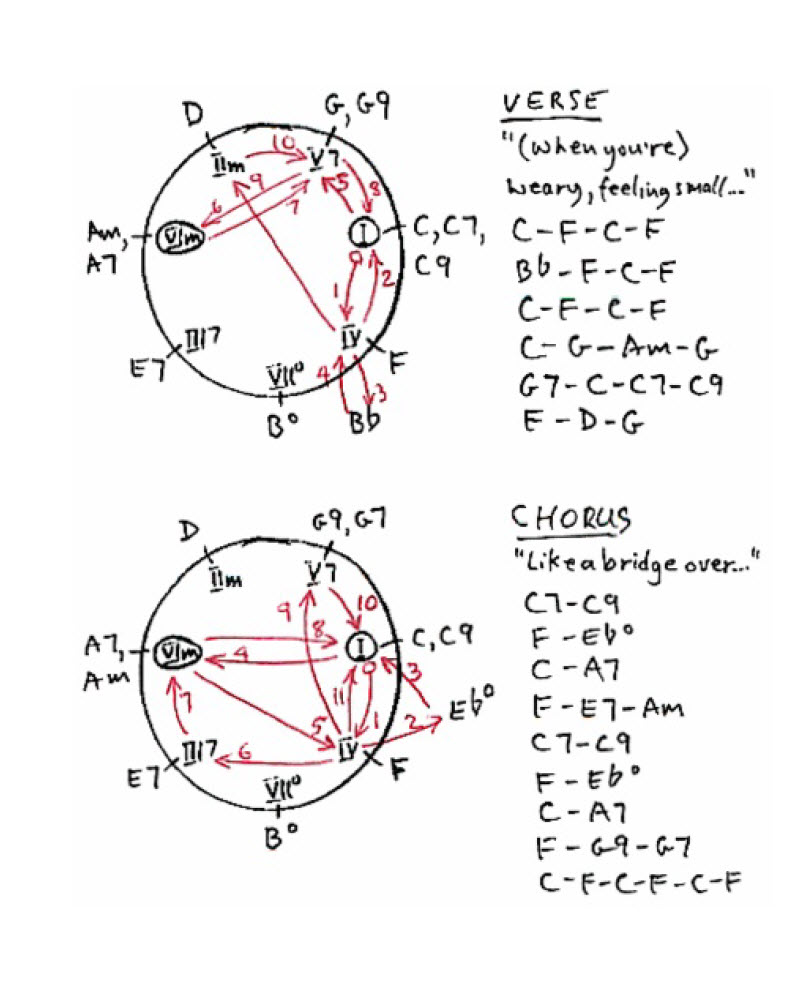 D
G, G9
IIm
10
V7
9
5
8
6
7
Am,
A7
VIm
I
C, C7,
C9
0
1
2
III7
E7
IV
F
VII°
4
3
B°
Bb
VERSE
"(when you're)
weary, feeling small..."
C-F-C-F
Bb-F-C-F
C-F-C-F
C-G-Am-G
G7-C-C7-C9
F-D-G
D
G9, G7
IIm
V7
9
10
8
A7,
Am
VIm
I
C, C9
4
0
3
11
7
5
1
2
Eb°
III7
6
IV
E7
F
VII°
B°
CHORUS
"Like a bridge over..."
C7-C9
F-Eb°
C-A7
F-E7-Am
C7-C9
F-Eb°
C-A7
F-G9-G7
C-F-C-F-C-F